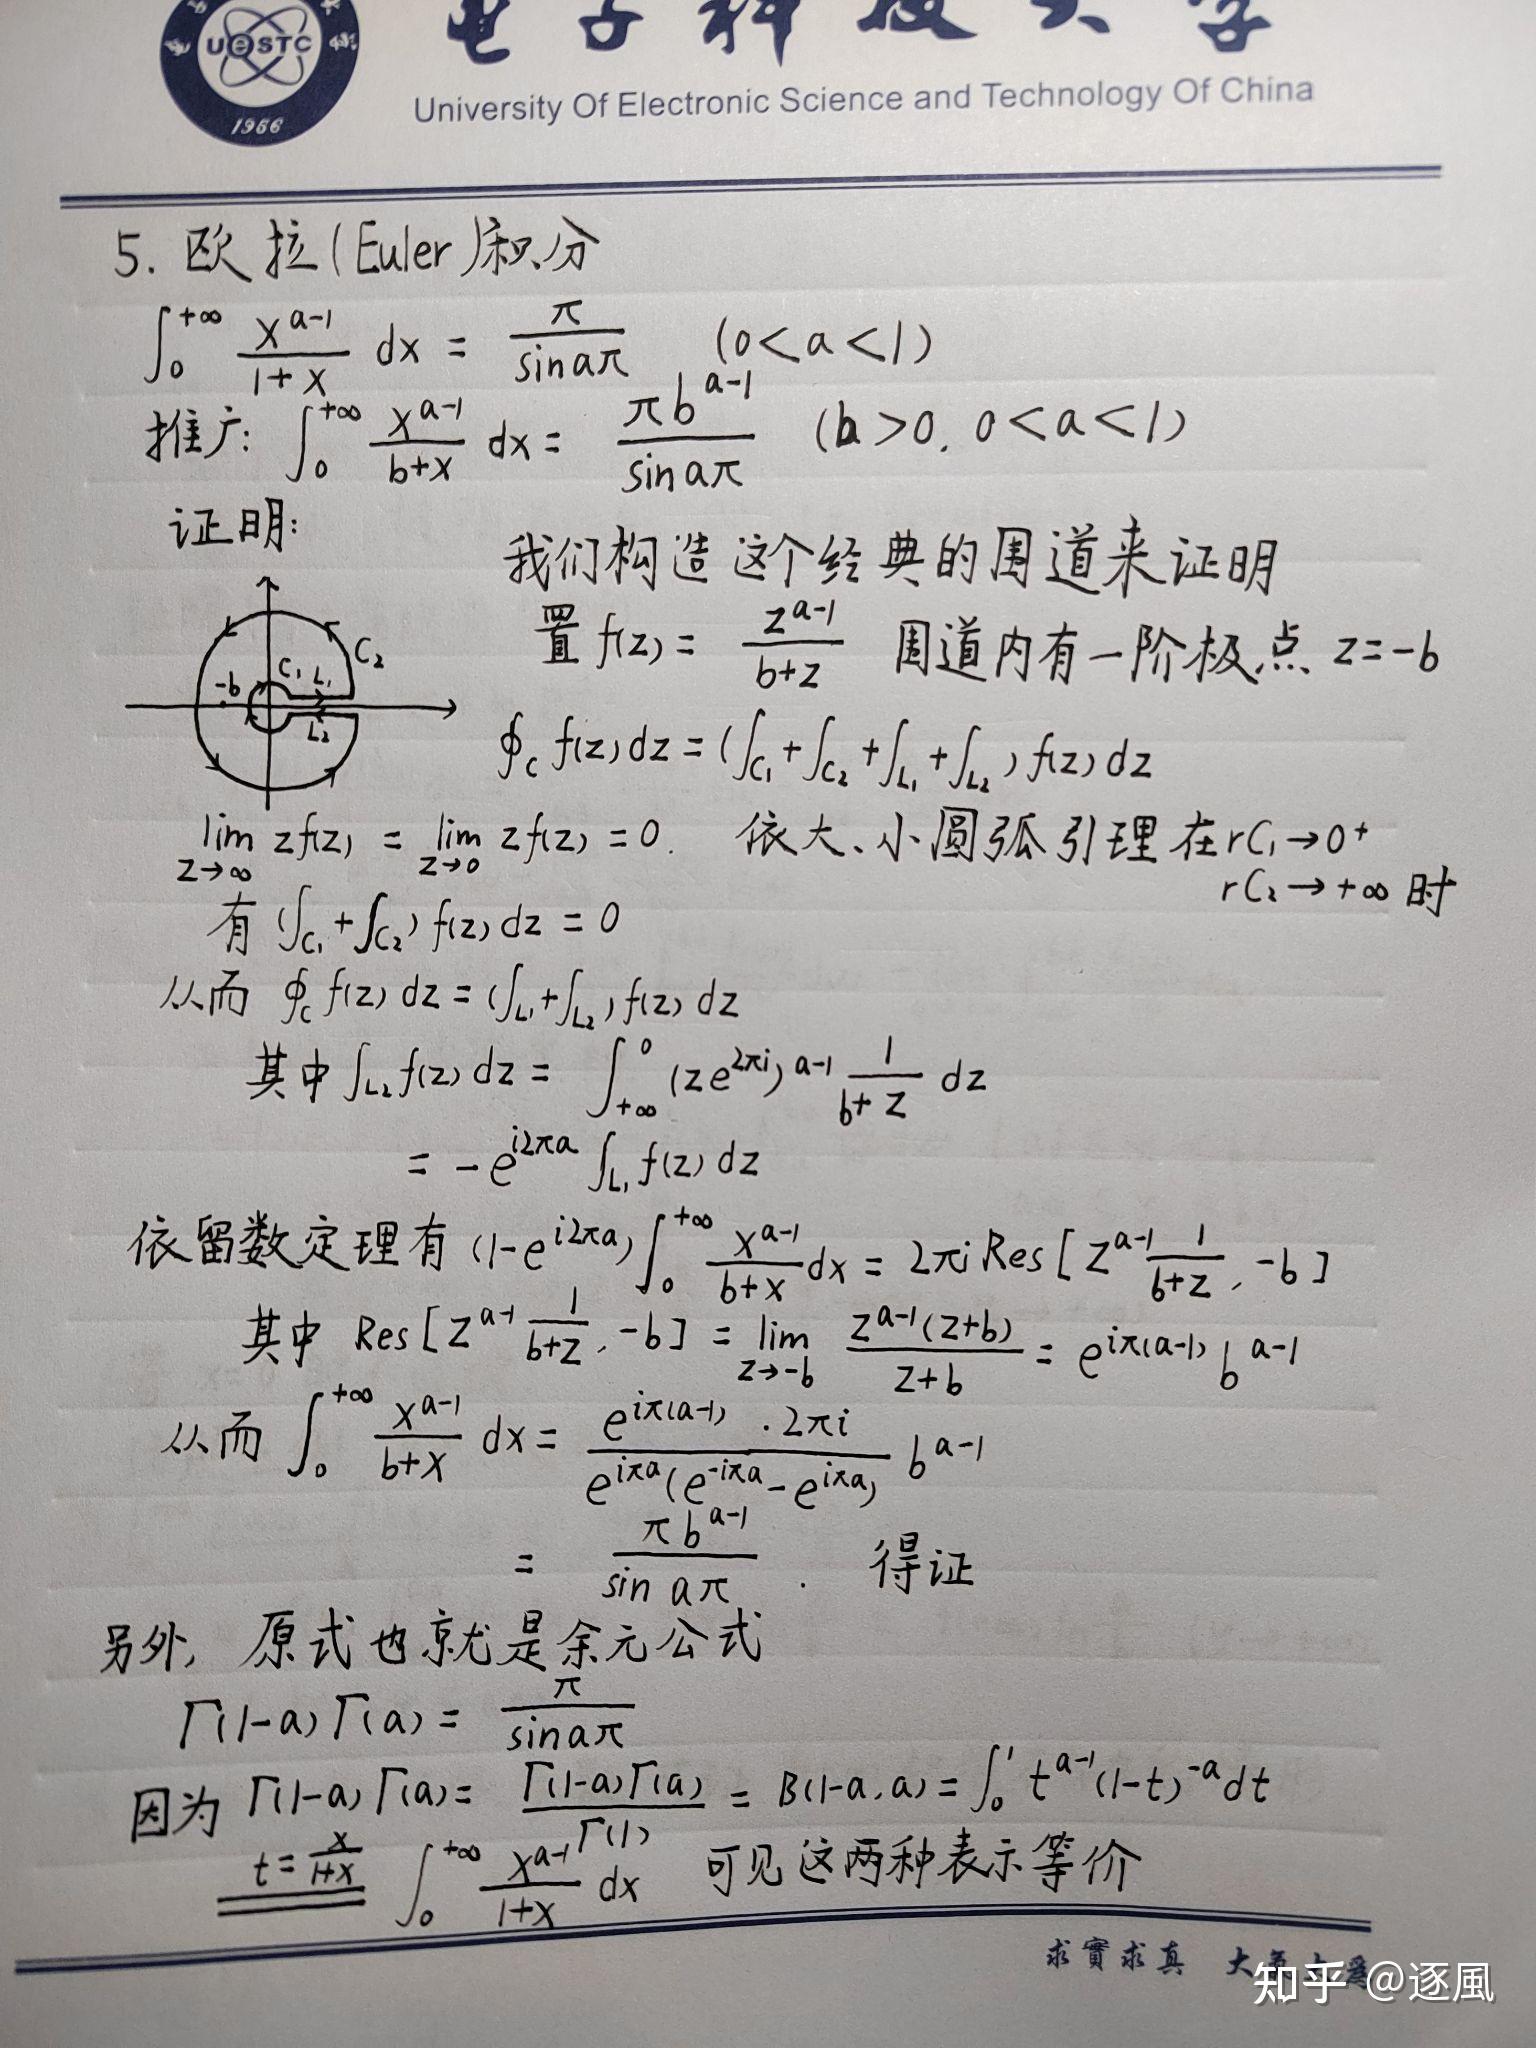 电子科技大学
UESTC
1956
University Of Electronic Science and Technology Of China
5. 欧拉(Euler)积分
∫₀^{+∞} x^{a-1}/(1+x) dx = π/(sin aπ) (0<a<1)
推广: ∫₀^{+∞} x^{a-1}/(b+x) dx = πb^{a-1}/(sin aπ) (b>0, 0<a<1)
证明:
我们构造这个经典的围道来证明
置 f(z) = z^{a-1}/(b+z) 围道内有一阶极点 z=-b
C₂
C₁ L₁
-b
L₂
∮_C f(z)dz = (∫_{C₁}+∫_{C₂}+∫_{L₁}+∫_{L₂}) f(z)dz
lim_{z→∞} zf(z) = lim_{z→0} zf(z) = 0. 依大、小圆弧引理在rC₁→0⁺
rC₂→+∞时
有 (∫_{C₁}+∫_{C₂}) f(z)dz = 0
从而 ∮_C f(z)dz = (∫_{L₁}+∫_{L₂}) f(z)dz
其中 ∫_{L₂} f(z)dz = ∫_{+∞}^0 (ze^{2πi})^{a-1} 1/(b+z) dz
= -e^{i2πa} ∫_{L₁} f(z)dz
依留数定理有 (1-e^{i2πa}) ∫₀^{+∞} x^{a-1}/(b+x) dx = 2πi Res[z^{a-1} 1/(b+z), -b]
其中 Res[z^{a-1} 1/(b+z), -b] = lim_{z→-b} z^{a-1}(z+b)/(z+b) = e^{iπ(a-1)} b^{a-1}
从而 ∫₀^{+∞} x^{a-1}/(b+x) dx = e^{iπ(a-1)}·2πi/(e^{iπa}(e^{-iπa}-e^{iπa})) b^{a-1}
= πb^{a-1}/(sin aπ). 得证
另外, 原式也就是余元公式
Γ(1-a)Γ(a) = π/(sin aπ)
因为 Γ(1-a)Γ(a) = Γ(1-a)Γ(a)/Γ(1) = B(1-a,a) = ∫₀^1 t^{a-1}(1-t)^{-a}dt
t=x/(1+x) ∫₀^{+∞} x^{a-1}/(1+x) dx 可见这两种表示等价
求實求真 大
知乎 @逐風